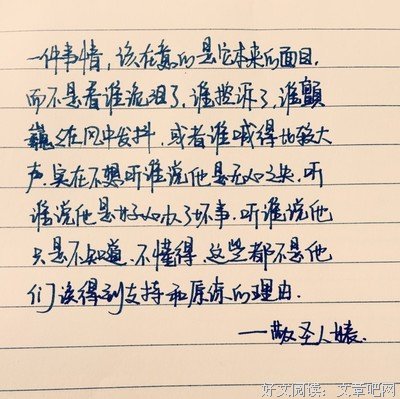 一件事情，该在意的是它本来的面目，
而不是看谁流泪了，谁控诉了，谁颤
巍巍在风中发抖，或者谁喊得比较大
声。实在不想听谁说他是无心之失，听
谁说他是好心办了坏事，听谁说他
只是不知道、不懂得，这些都不是他
们该得到支持和原谅的理由。
——敬圣人婊
好文阅读：文章吧网